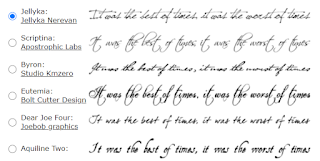 Jellyka:
Jellyka Nerevan
It was the best of times, it was the worst of times
Scriptina:
Apostrophic Labs
It was the best of times, it was the worst of times
Byron:
Studio Kmzero
It was the best of times, it was the worst of times
Eutemia:
Bolt Cutter Design
It was the best of times, it was the worst of times
Dear Joe Four:
Joebob graphics
It was the best of times, it was the worst of times
Aquiline Two:
It was the best of times, it was the worst of times